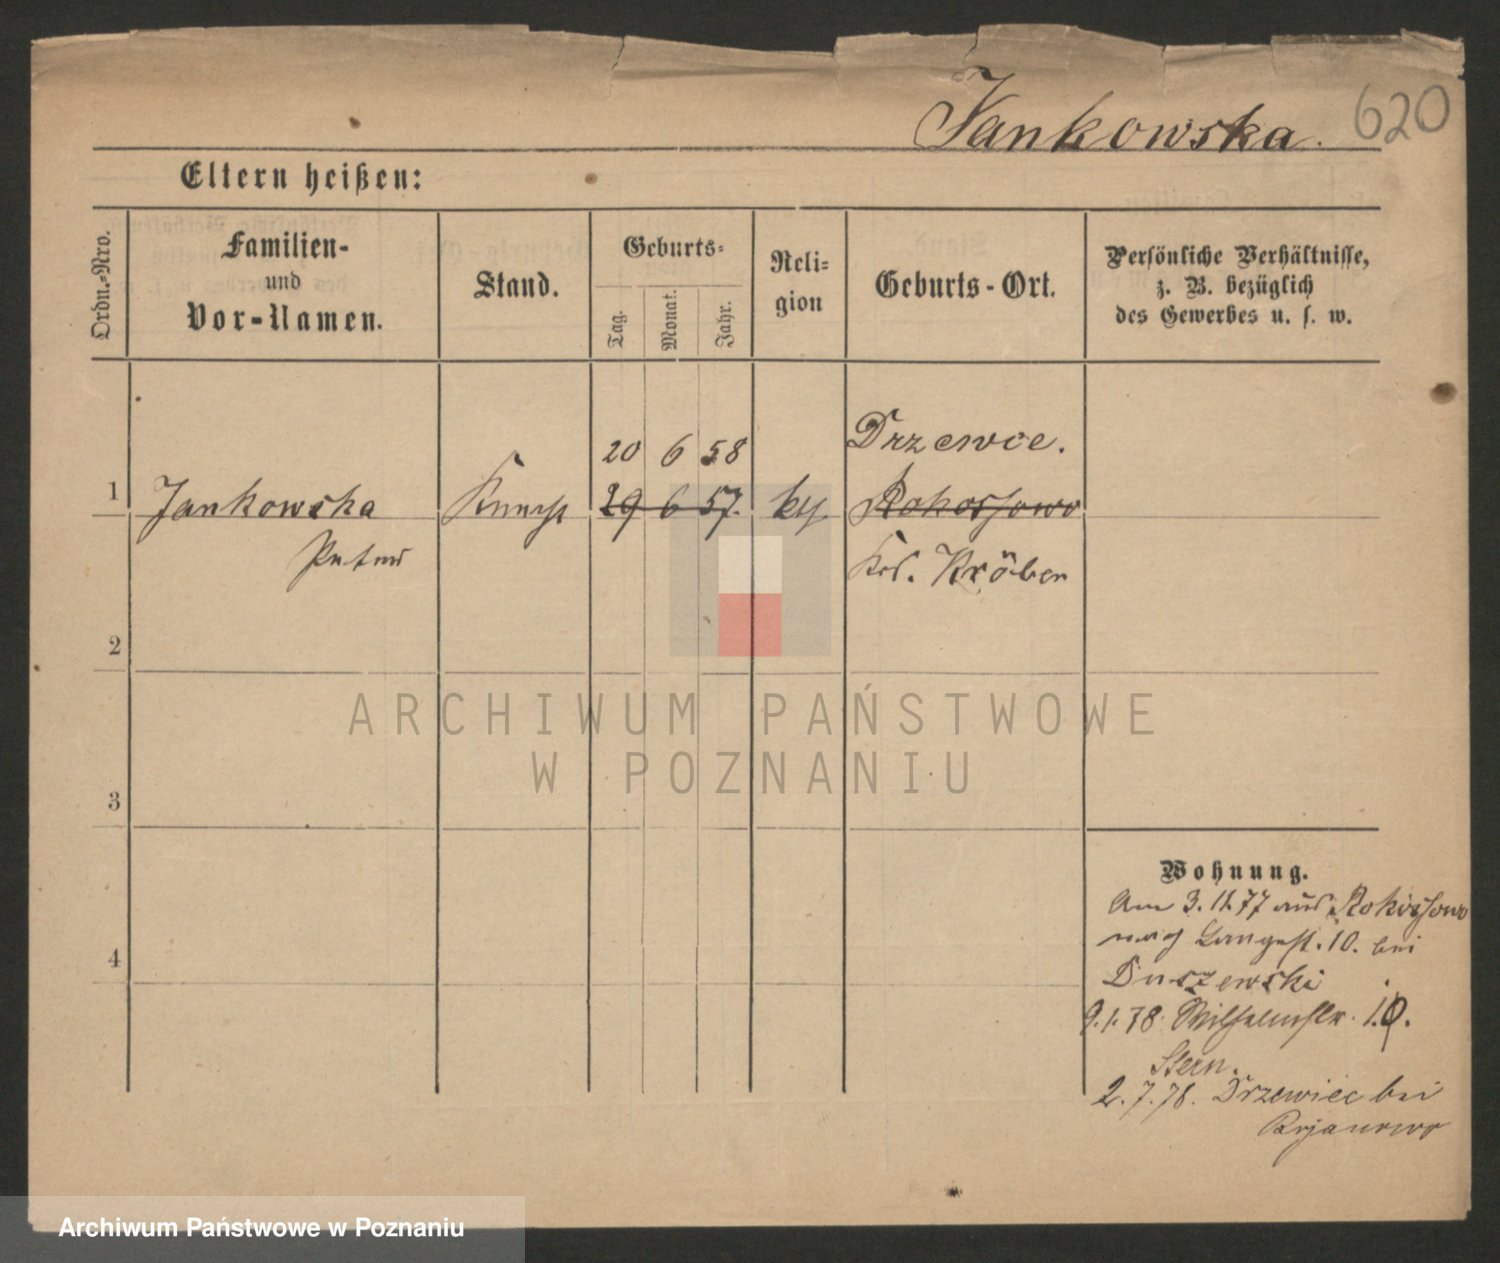 Jankowska. 620
Eltern heißen:
Ordn.-Nro.
Familien-
und
Vor-Namen.
Stand.
Geburts-
Tag.
Monat.
Jahr.
Reli-
gion
Geburts-Ort.
Persönliche Verhältnisse,
z. B. bezüglich
des Gewerbes u. s. w.
20 6 58
Drzewce.
1 Jankowska Knecht 29 6 57. kth. Rokossowo
Krs. Kröben
2
3
4
Wohnung.
Am 3.11.77 aus Rokossowo
nach Langestr. 10. bei
Duszewski
9.1.78. Wilhelmstr. 10.
Stern.
2.7.78. Drzewiec bei
ARCHIWUM PAŃSTWOWE
W POZNANIU
Archiwum Państwowe w Poznaniu